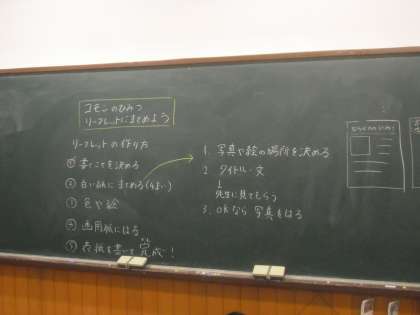 コモンのひみつ
リーフレットにまとめよう
リーフレットの作り方
① 書くことを決める
② 白い紙にまとめる(4まい)
③ 色や絵
④ 画用紙にはる
⑤ 表紙を書いて完成!
1. 写真や絵の場所を決める
2 タイトル・文
↓
先生に見てもらう
3. OKなら写真をはる